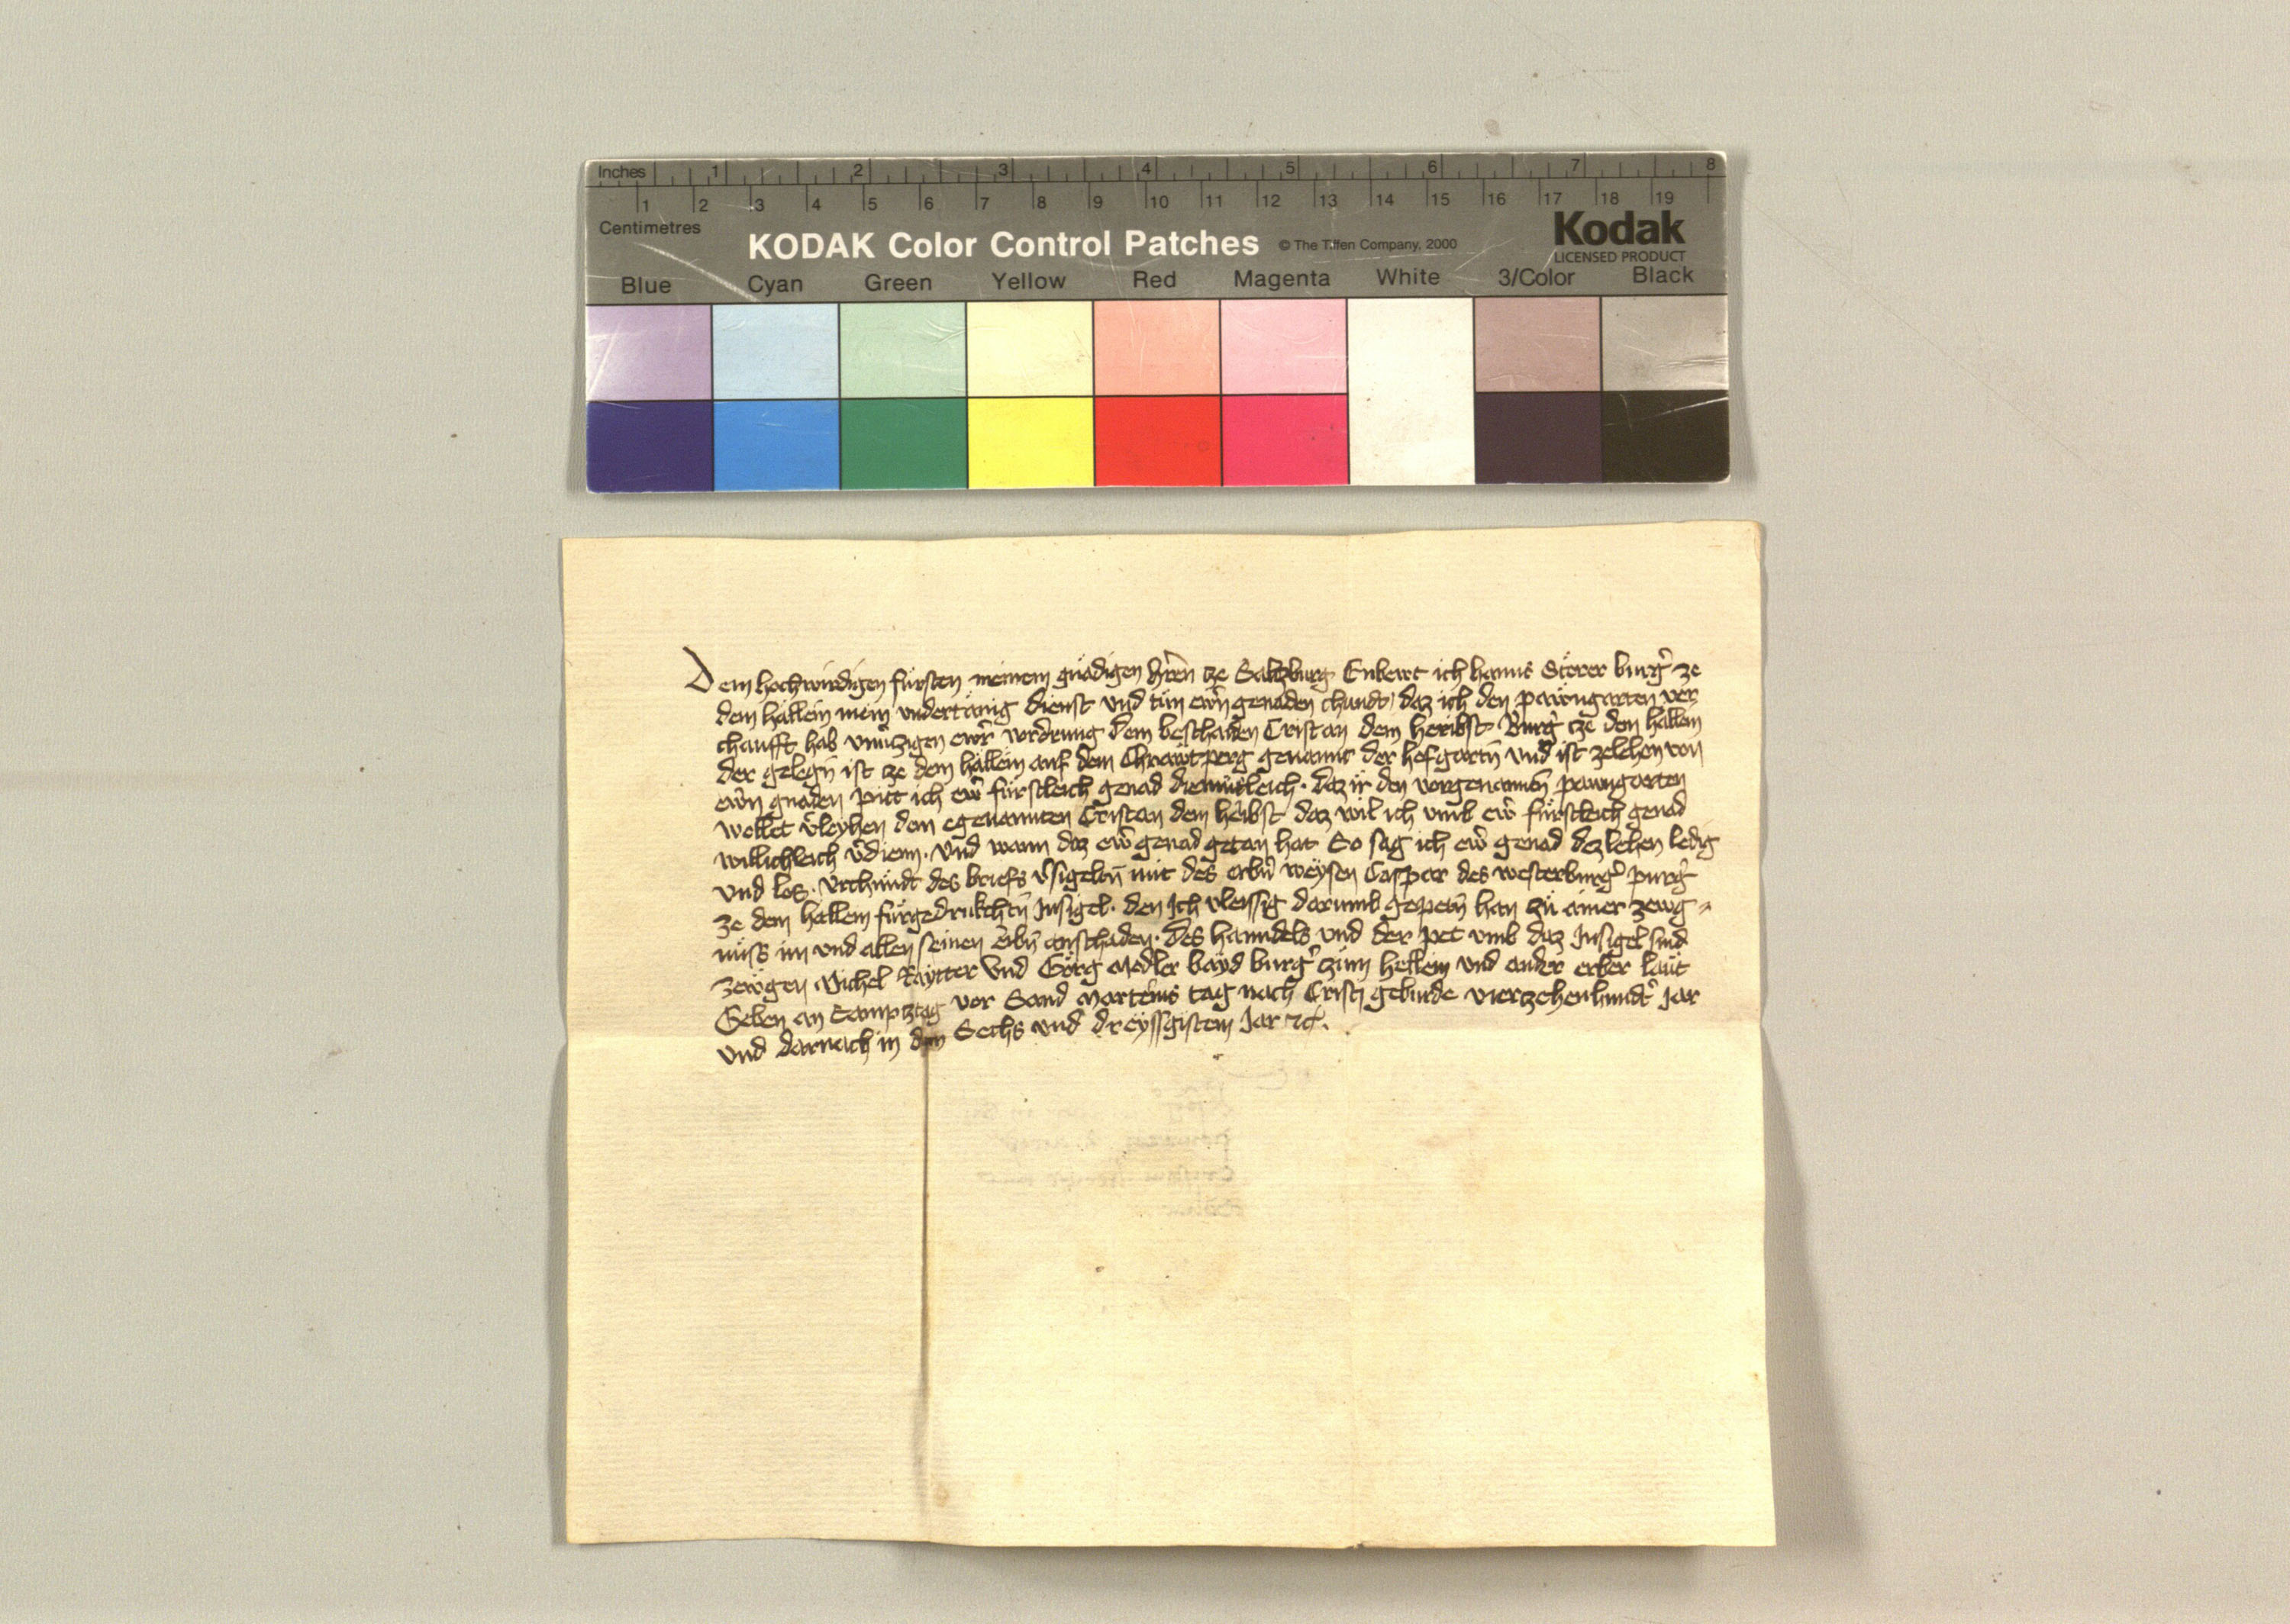 Inches 1 2 3 4 5 6 7 8
1 2 3 4 5 6 7 8 9 10 11 12 13 14 15 16 17 18 19
Centimetres
KODAK Color Control Patches © The Tiffen Company, 2000 Kodak
LICENSED PRODUCT
Blue Cyan Green Yellow Red Magenta White 3/Color Black
Dem hochwirdigen fürsten meinem gnädigen hrͤn ze Saltzburg Enbewt ich hanns Störer burgͤ ze
dem hallein mein vndertänig dienst vnd tün ewrͤn genaden chundt daz ich den pawngarten ver
chaufft hab ewrͤ vordrung dem beschaiden Cristan dem heribst Burgͤ ze dem hallein
der gelegn̄ ist ze dem hallein auf dem genannt der hofgartn̄ vnd ist ze lehen von
ewrͤn gnaden pitt ich ewrͤ fürstleich genad diemütleich. daz ir den vorgenannten̄ pawngarten
wellet vͤleyhen dem egenannten Cristan dem heribst daz wil ich vmb ewrͤ fürstleich genad
willichleich vͤdienn. vnd wann daz ewrͤ genad getan hat So sag ich ewrͤ genad dez lehen ledig
vnd los. vrchundt des briefs vͤsigeltn̄ mit des erbn̄ weysen Caspar des westerburgͤ purgͤ
ze dem hallein fürgedrukchtn̄ Insigel. den ich vleissig darumb gepetn̄ han zü ainer zewg=
nüss im vnd allen seinen erbn̄ anschaden. des hanndels vnd der pet vmb daz Insigel sind
zewgen Michel Raytter vnd Görg Medler bayd burgͤ zum hellein vnd ander erber läut
Geben an Samptztag vor Sand Marteins tag nach Cristi geburde vierzehenhundtͤ Jar
vnd darnach in dem Sechs vnd dreyssgistem Jar etc.